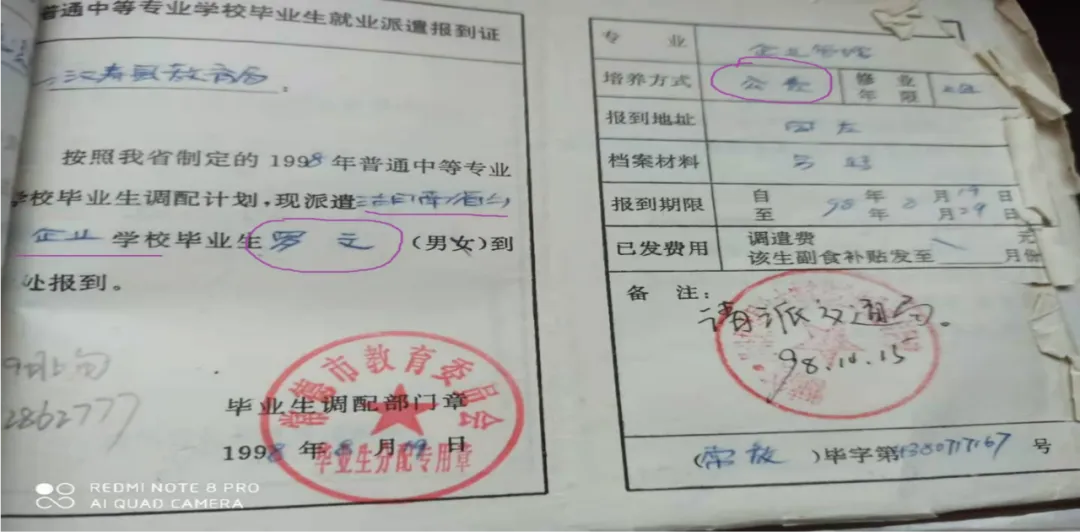 普通中等专业学校毕业生就业派遣报到证
汉寿县教育局:
按照我省制定的1998年普通中等专业
学校毕业生调配计划,现派遣
企业 学校毕业生 罗文 (男女)到
处报到。
2862777
毕业生调配部门章
1998年8月19日
常德市教育委员会
毕业生分配专用章
专业 企业管理
培养方式 公费 修业年限
报到地址
档案材料
报到期限 自 98年8月19日
至 年 月29日
已发费用 调遣费 元
该生副食补贴发至 月份
备注:
请派交通局。
98.10.15
(常教)毕字第 号
REDMI NOTE 8 PRO
AI QUAD CAMERA